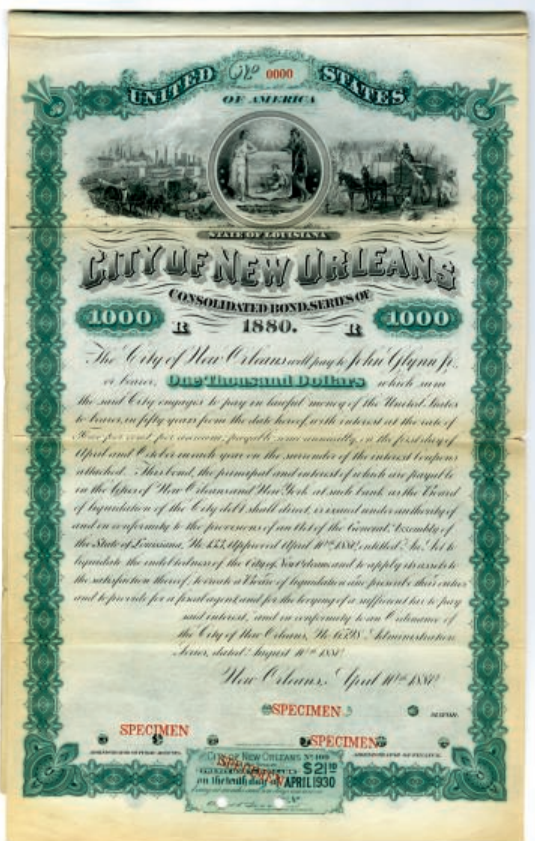 UNITED No 0000 STATES
OF AMERICA
STATE OF LOUISIANA
CITY OF NEW ORLEANS
CONSOLIDATED BOND, SERIES OF
1000 R 1880. R 1000
The City of New Orleans will pay to John Glynn Jr.
or bearer, One Thousand Dollars which sum
the said City engages to pay in lawful money of the United States
to bearer, in fifty years from the date hereof, with interest at the rate of
per cent per annum, payable semi annually, on the first day of
April and October in each year on the surrender of the interest coupons
attached. This bond, the principal and interest of which are payable
in the Cities of New Orleans and New York at such bank as the Board
of liquidation of the City debt shall direct, is issued under authority of
and in conformity to the provisions of an Act of the General Assembly of
the State of Louisiana, No 133, Approved April 10th 1880, entitled An Act to
liquidate the indebtedness of the City of New Orleans and to apply its assets to
the satisfaction thereof, to create a Board of liquidation and prescribe their duties
and to provide for a fiscal agent and for the levying of a sufficient tax to pay
said interest, and in conformity to an Ordinance of
the City of New Orleans, No 6798 Administration
Series, dated August 10th 1880
New Orleans, April 10th 1880
SPECIMEN MAYOR.
SPECIMEN SPECIMEN
ADMINISTRATOR OF FINANCE.
CITY OF NEW ORLEANS No 100
SPECIMEN $21
on the tenth day of APRIL 1930